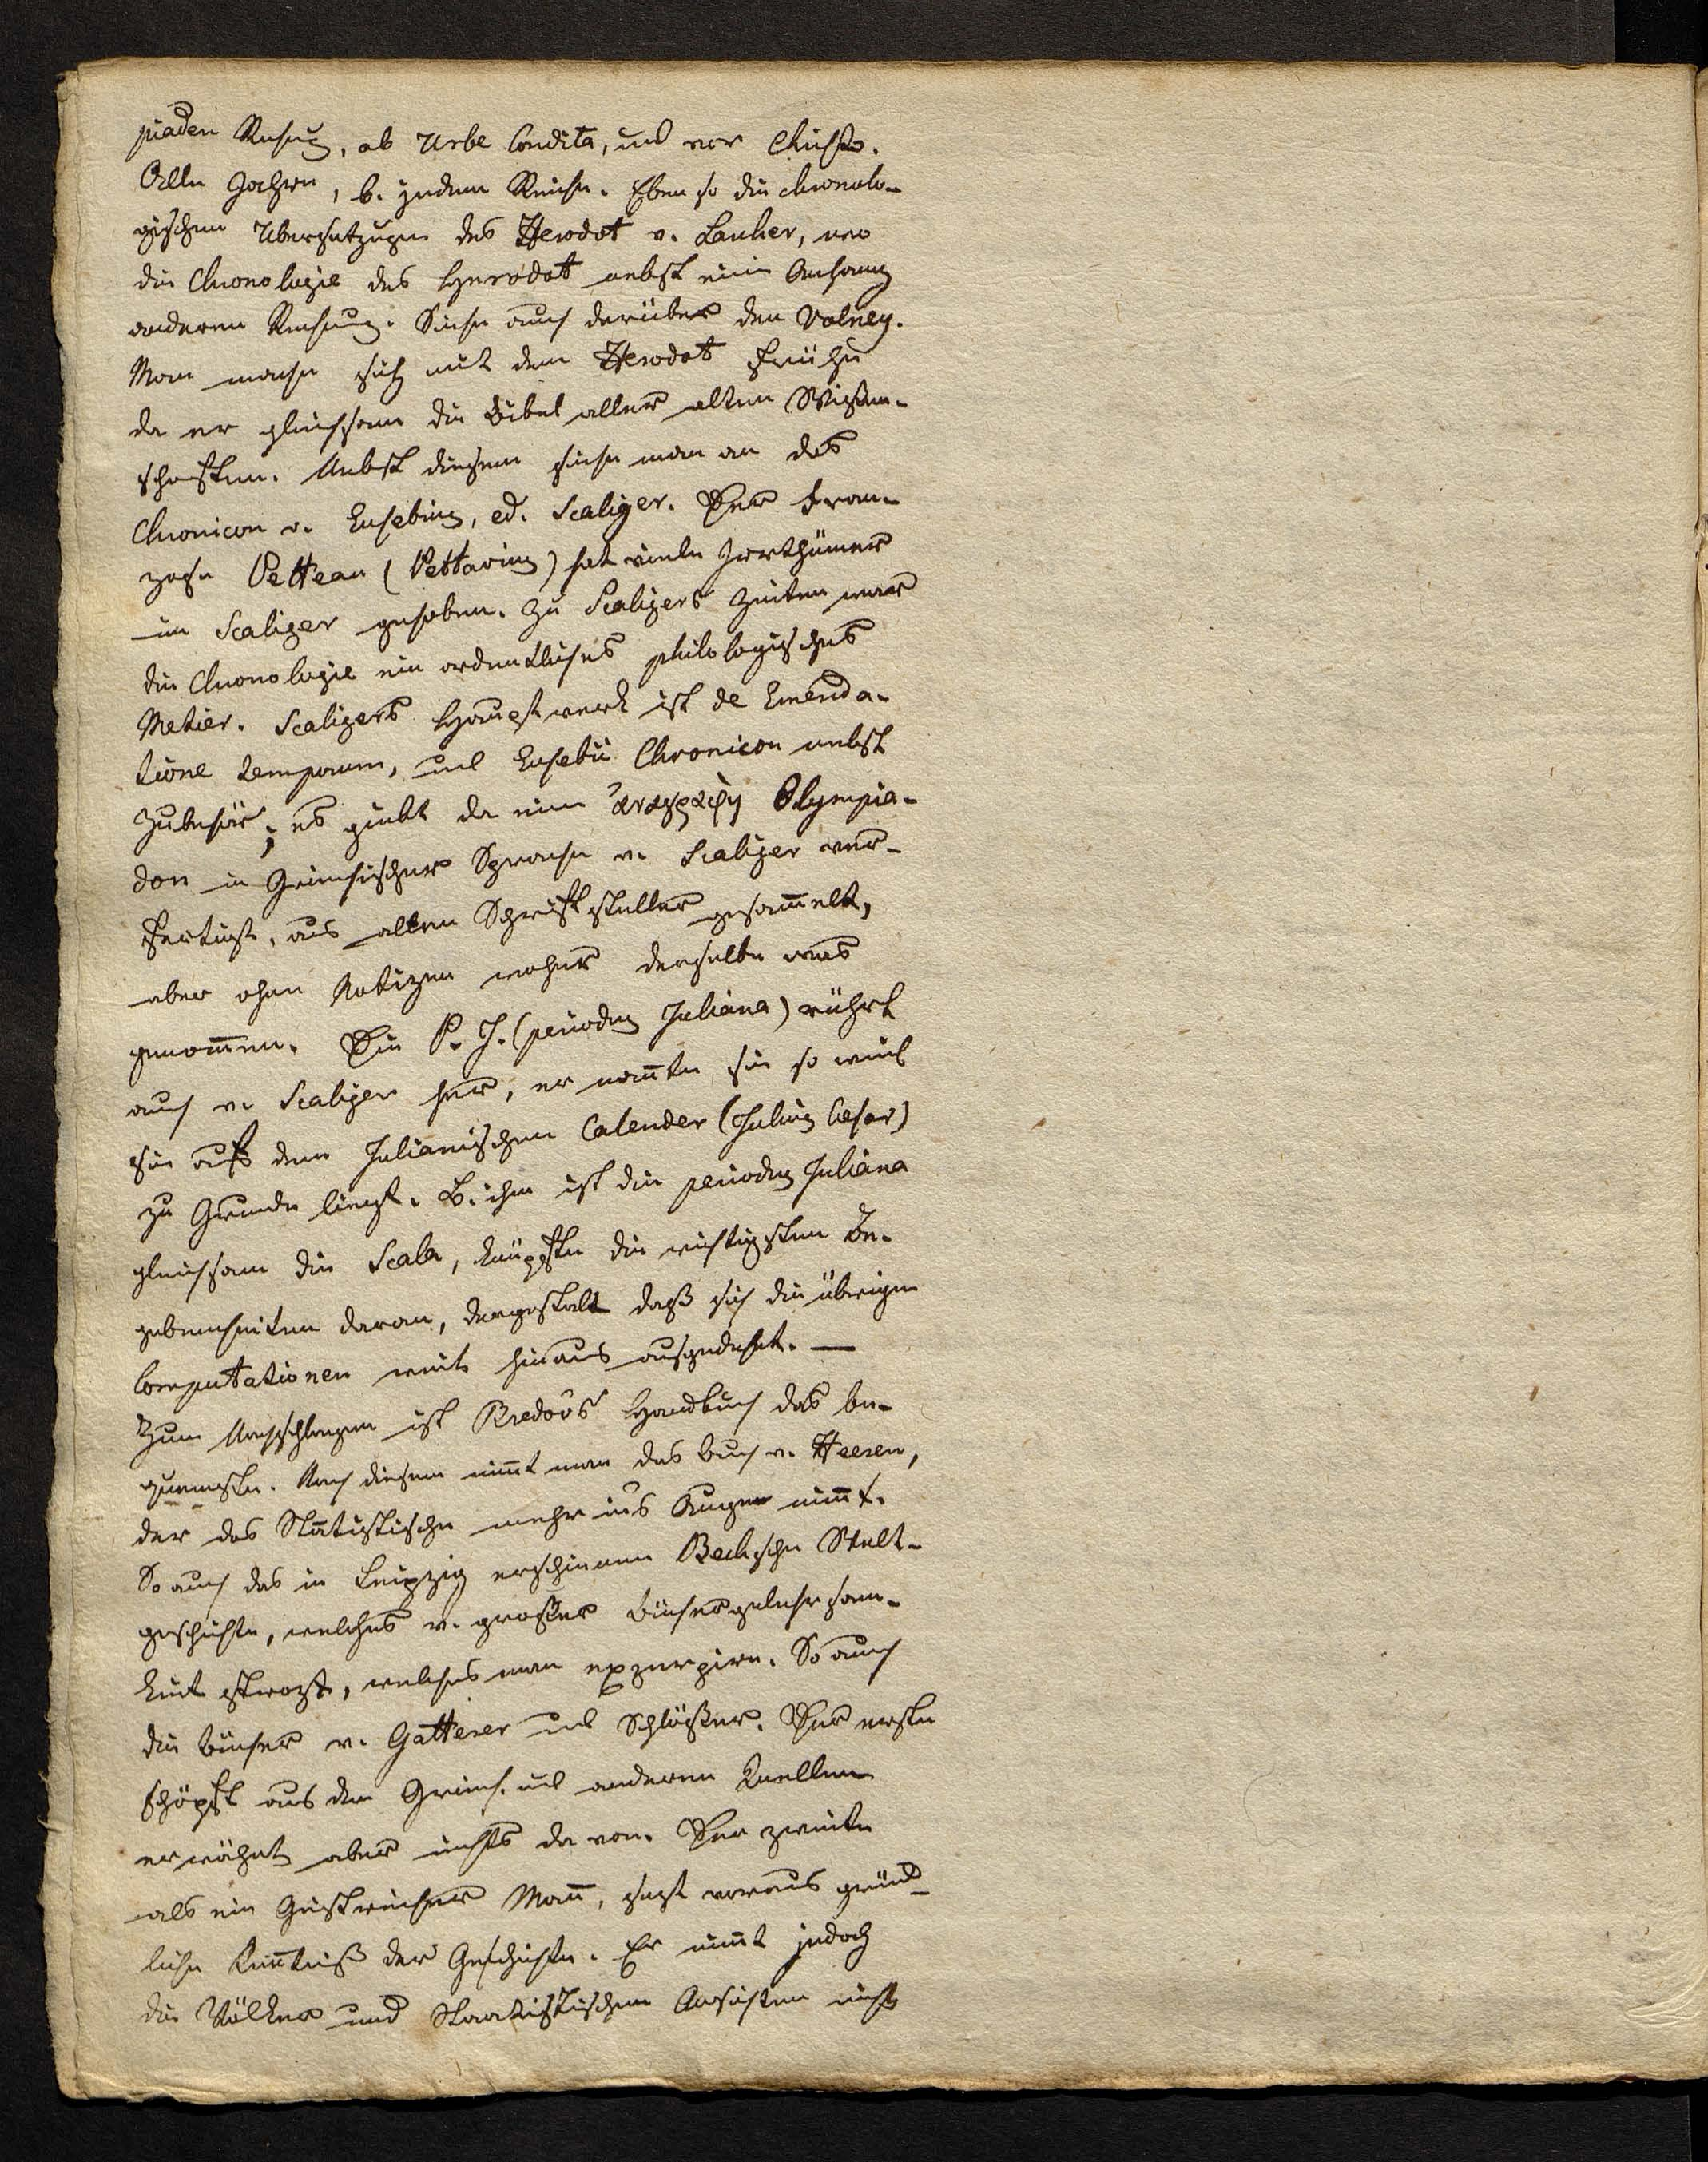 piaden Rechnung, ab Urbe Condita, und vor Christo.
Alle Jahren, b. jedem Reiche. Eben so die chronolo-
gischen Ubersetzungen des Herodot v. Larcher, wo
die Chronologie des Herodot nebst einem Anhang
anderen Rechnung. Siehe auch darüber den Volney.
Man mache sich mit dem Herodot frühe
da er gleichsam die Bibel aller alten Wißen-
schaften. Nebst diesem siehe man an das
Chronicon v. Eusebius, ed. Scaliger. Der Fran-
zose Petteau (Pettavius) hat viele Irrthümer
im Scaliger gehoben. Zu Scaligers Zeiten war
die Chronologie ein ordentliches philologisches
Metier. Scaligers Hauptwerk ist de Emenda-
tione temporum, und Eusebii Chronicon nebst
Zubehör; es giebt da eine ἀναγραφὴ Olympia-
don in Griechischer Sprache v. Scaliger ver-
fertigt, aus alten Schriftsteller gesam̄elt,
aber ohne Notizen woher derselbe was
genom̄en. Die P. J. (periodus Juliana) rührt
auch v. Scaliger her, er nan̄te sie so weil
sie auf dem Julianischen Calender (Julius Cæsar)
zu Grunde liegt. B. ihm ist die periodus Juliana
gleichsam die Scala, knüpfte die wichtigsten Be-
gebenheiten daran, dergestalt daß sich die übrigen
Computationen weit hinaus ausgedehnt. —
Zum Nachschlagen ist Bredow's Handbuch das be-
quemste. Nach diesem nim̄t man das Buch v. Heeren,
der das Statistische mehr ins Auge nim̄t.
So auch das in Leipzig erschienene Becksche Welt-
geschichte, welches v. großer Büchergelehrsam-
keit strozt, welches man exzerpire. So auch
die Bücher v. Gatterer und Schlößer. Der erste
schöpft aus den Griech. und anderen Quellen
erwähnt aber nichts davon. Der zweite
als ein Geistreicher Man̄, sezt voraus gründ-
liche Ken̄tniß der Geschichte. Er nim̄t jedoch
die Völker und Staatistischen Ansichten nicht